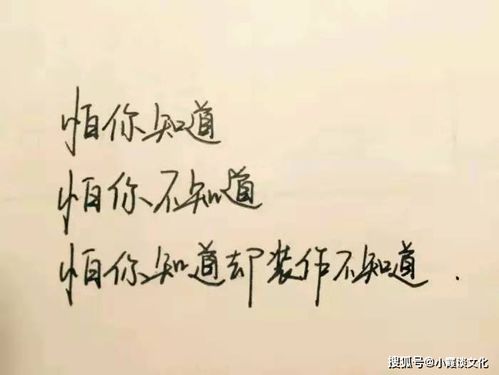 怕你知道
怕你不知道
怕你知道却装作不知道.
搜狐号@小霞谈文化